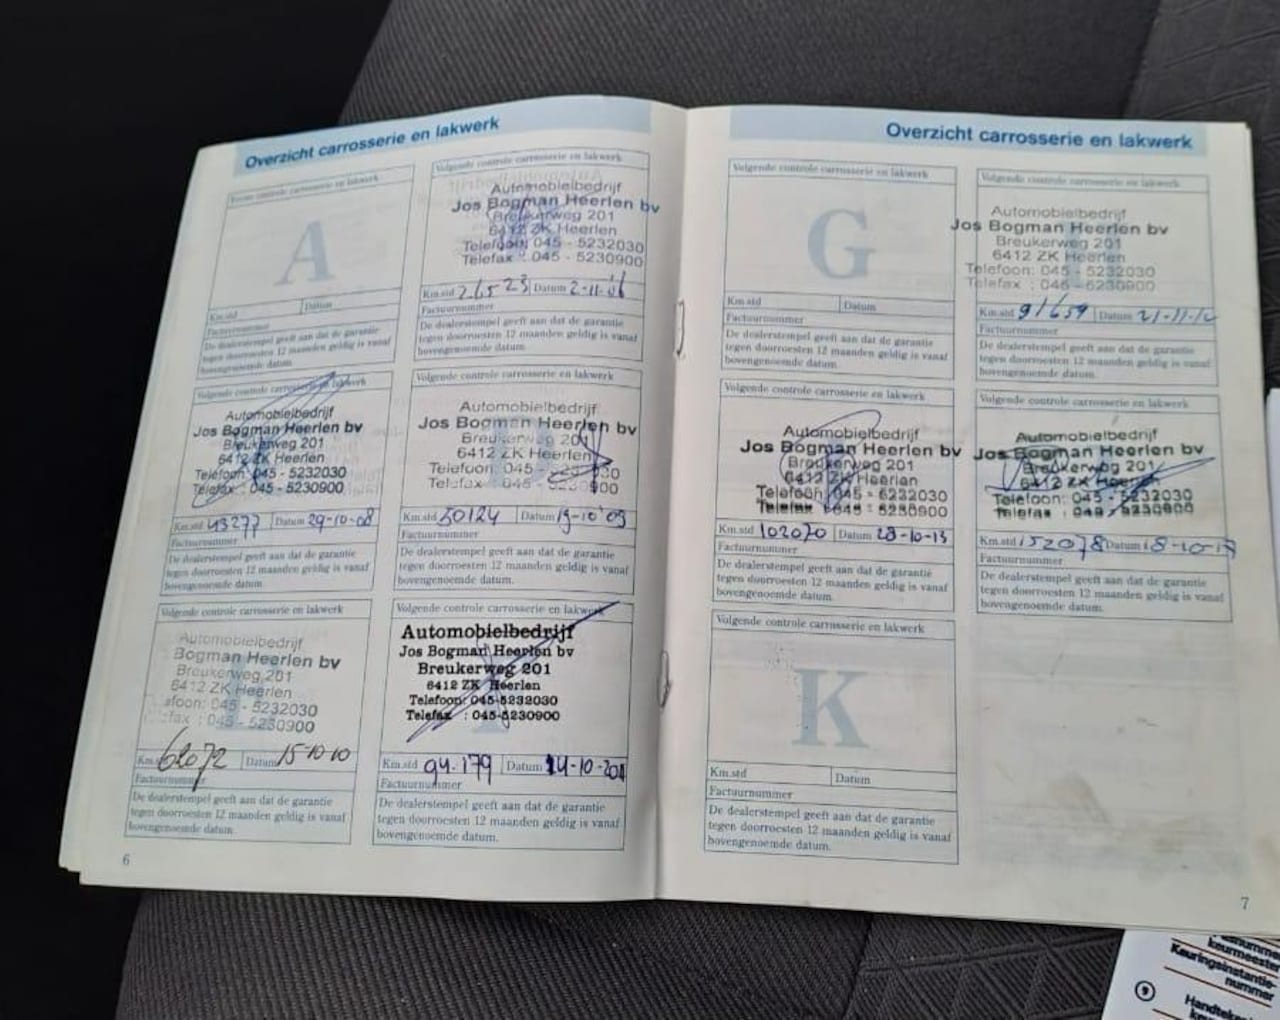 Overzicht carrosserie en lakwerk
Eerste controle carrosserie en lakwerk
A
Km.std
Datum
Factuurnummer
De dealerstempel geeft aan dat de garantie
tegen doorroesten 12 maanden geldig is vanaf
bovengenoemde datum.
Volgende controle carrosserie en lakwerk
Automobielbedrijf
Jos Bogman Heerlen bv
Breukerweg 201
6412 ZK Heerlen
Telefoon: 045 - 5232030
Telefax : 045 - 5230900
Km.std 26523 Datum 2-11-06
Factuurnummer
De dealerstempel geeft aan dat de garantie
tegen doorroesten 12 maanden geldig is vanaf
bovengenoemde datum.
Volgende controle carrosserie en lakwerk
Automobielbedrijf
Jos Bogman Heerlen bv
Breukerweg 201
6412 ZK Heerlen
Telefoon: 045 - 5232030
Telefax : 045 - 5230900
Km.std 43277 Datum 29-10-08
Factuurnummer
De dealerstempel geeft aan dat de garantie
tegen doorroesten 12 maanden geldig is vanaf
bovengenoemde datum.
Volgende controle carrosserie en lakwerk
Automobielbedrijf
Jos Bogman Heerlen bv
Breukerweg 201
6412 ZK Heerlen
Telefoon: 045 -
Telefax : 045 -
Km.std 50124 Datum
Factuurnummer
De dealerstempel geeft aan dat de garantie
tegen doorroesten 12 maanden geldig is vanaf
bovengenoemde datum.
Volgende controle carrosserie en lakwerk
Automobielbedrijf
Bogman Heerlen bv
Breukerweg 201
6412 ZK Heerlen
efoon: 045 - 5232030
fax : 045 - 5230900
Km.s 62072 Datum 15-10-10
Factuurnummer
De dealerstempel geeft aan dat de garantie
tegen doorroesten 12 maanden geldig is vanaf
bovengenoemde datum.
Volgende controle carrosserie en lakwerk
Automobielbedrijf
Jos Bogman Heerlen bv
Breukerweg 201
6412 ZK Heerlen
Telefoon: 045-5232030
Telefax : 045-5230900
Km.std 94.179 Datum
Factuurnummer
De dealerstempel geeft aan dat de garantie
tegen doorroesten 12 maanden geldig is vanaf
bovengenoemde datum.
6
Overzicht carrosserie en lakwerk
Volgende controle carrosserie en lakwerk
G
Km.std
Datum
Factuurnummer
De dealerstempel geeft aan dat de garantie
tegen doorroesten 12 maanden geldig is vanaf
bovengenoemde datum.
Volgende controle carrosserie en lakwerk
Automobielbedrijf
Jos Bogman Heerlen bv
Breukerweg 201
6412 ZK Heerlen
Telefoon: 045 - 5232030
Telefax : 045 - 5230900
Km.std 91659 Datum 21-11-12
Factuurnummer
De dealerstempel geeft aan dat de garantie
tegen doorroesten 12 maanden geldig is vanaf
bovengenoemde datum.
Volgende controle carrosserie en lakwerk
Automobielbedrijf
Jos Bogman Heerlen bv
Breukerweg 201
6412 ZK Heerlen
Telefoon: 045 - 5232030
Telefax : 045 - 5230900
Km.std 102020 Datum 28-10-13
Factuurnummer
De dealerstempel geeft aan dat de garantie
tegen doorroesten 12 maanden geldig is vanaf
bovengenoemde datum.
Volgende controle carrosserie en lakwerk
Automobielbedrijf
Jos Bogman Heerlen bv
Breukerweg 201
6412 ZK Heerlen
Telefoon: 045 - 5232030
Telefax : 045 - 5230900
Km.std 152078 Datum
Factuurnummer
De dealerstempel geeft aan dat de garantie
tegen doorroesten 12 maanden geldig is vanaf
bovengenoemde datum.
Volgende controle carrosserie en lakwerk
K
Km.std
Datum
Factuurnummer
De dealerstempel geeft aan dat de garantie
tegen doorroesten 12 maanden geldig is vanaf
bovengenoemde datum.
7
keurmeester
Keuringsinstantie-
nummer
9